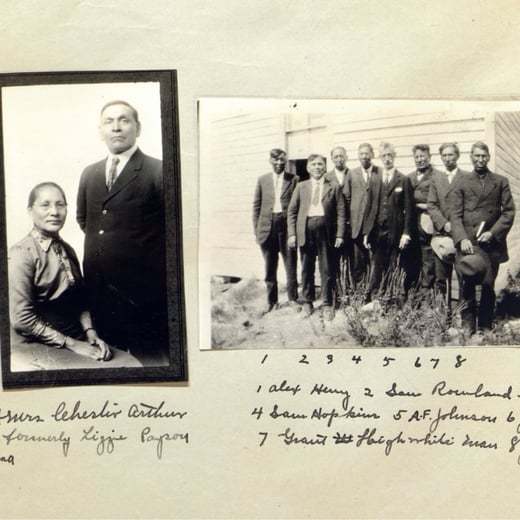 Mrs Chester Arthur
formerly Lizzie Payson
1 2 3 4 5 6 7 8
1 Alex Henry 2 Sam Rowland
4 Sam Hopkins 5 A.F. Johnson 6
7 Grant Highwhite man 8